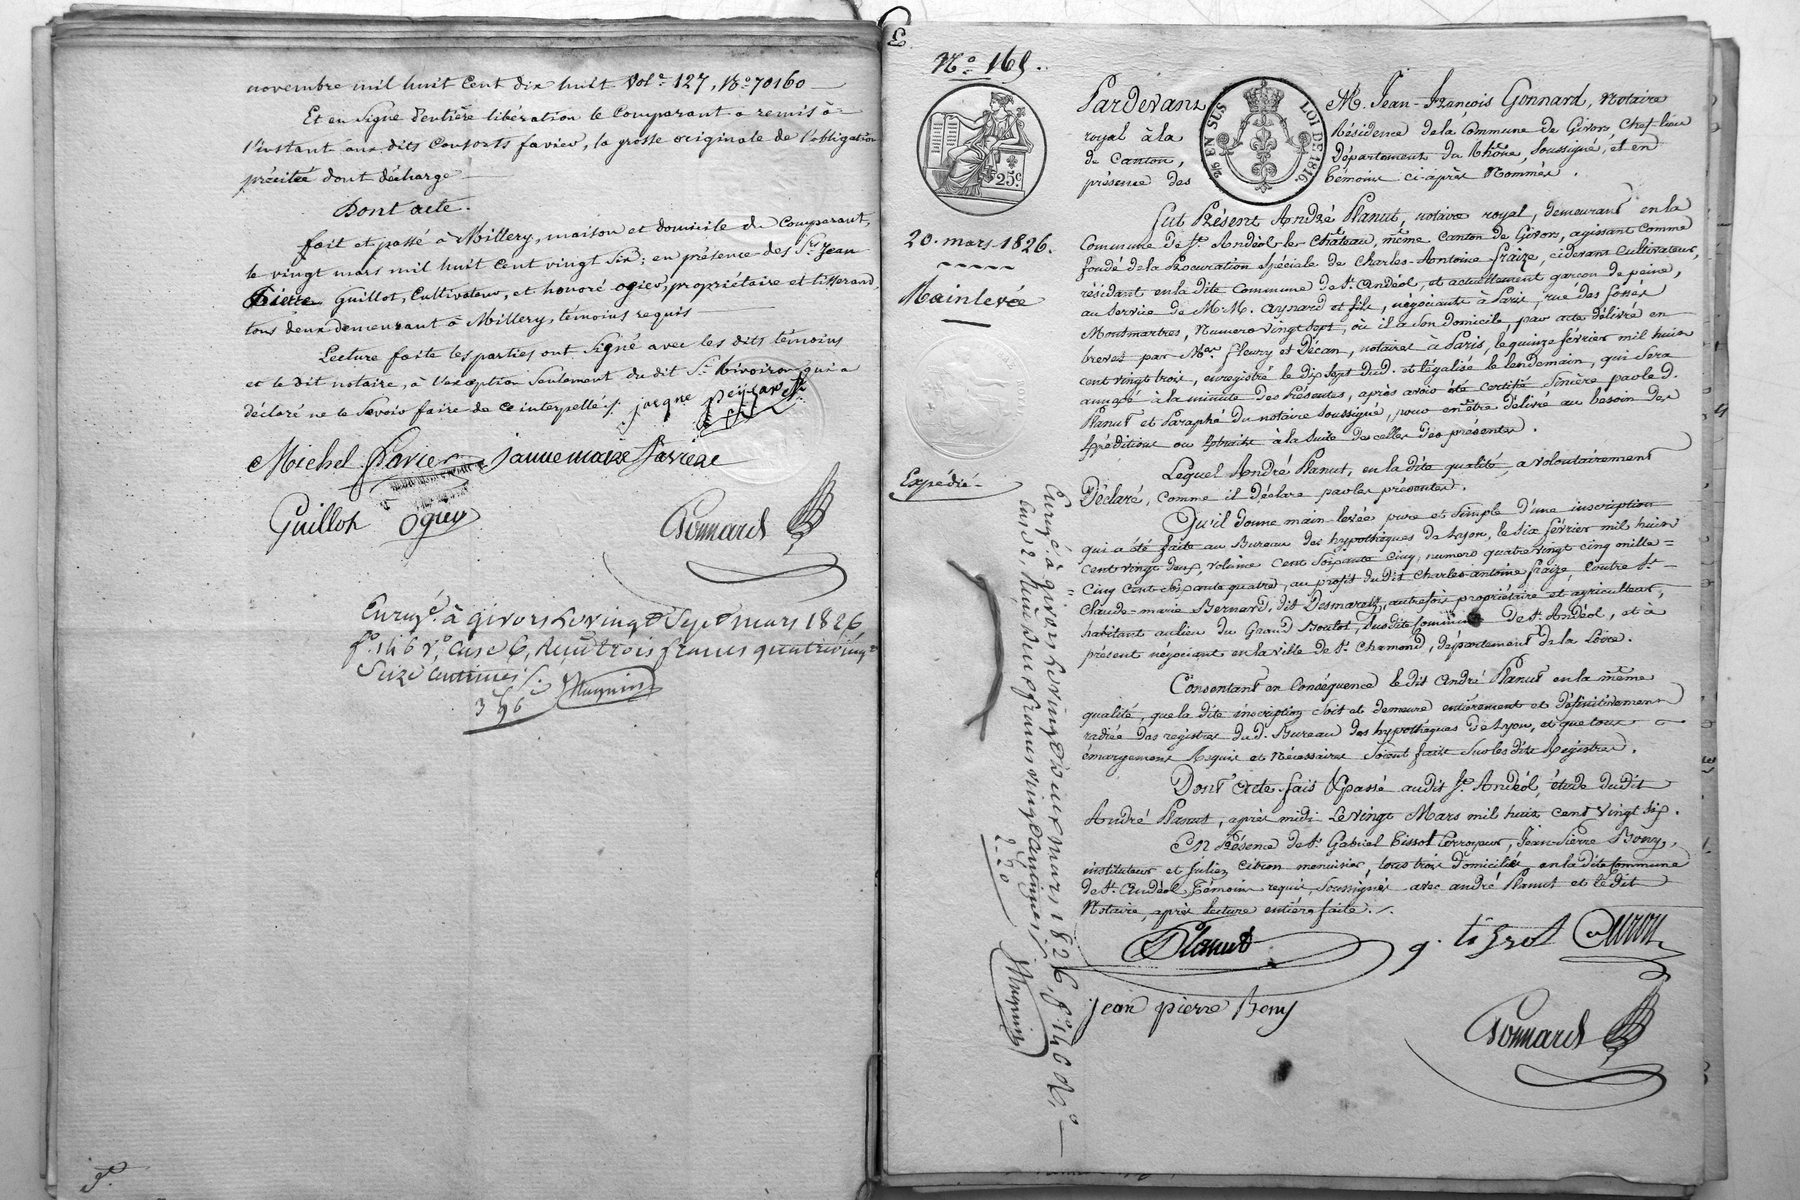 novembre mil huit cent dix huit Vol.e 127, N.o 70160
Et en signe d'entière libération le Comparant a remis à
l'instant aux dits Consorts favier, la grosse originale de l'obligation
précitée dont décharge
Dont acte.
fait et passé à Millery, maison et domicile du Comparant,
le vingt mars mil huit cent vingt six; en présence des Srs Jean
Pierre Guillot, Cultivateur, et honoré ogier, propriétaire et tisserand,
tous deux demeurant à Millery, témoins requis
Lecture faite les parties ont signé avec les dits témoins
et le dit notaire, à l'exception seulement du dit Sr. qui a
déclaré ne le savoir faire de ce interpellé /.
Michel favier
Guillot ogier Gonnard
Enregé à givors le vingt Sept mars 1826
fo. 146 Vo. Case 6, Reçu trois francs quatrevingt
Seize centimes /.
3 96
No. 169.
EN SUS LOI DE 1816.
25c
Pardevant M. Jean-François Gonnard, Notaire
royal à la Résidence de la Commune de Givors, Chef-lieu
de Canton, Département du Rhône, soussigné, et en
présence des témoins ci-après Nommés.
20. mars 1826.
Mainlevée
Expédié
fut Présent André Planut, notaire royal, demeurant en la
Commune de St. Andéol-le-Château, même Canton de Givors, agissant comme
fondé de la Procuration spéciale de Charles-Antoine fraize, cidevant Cultivateur,
résidant en la dite Commune de St. Andéol, et actuellement garçon de peine,
au Service de M.M. aynard et fils, négociants à Paris, rue des fossés
Montmartres, Numero vingt sept, où il a son domicile, par acte délivré en
brevet par Mes. fleury et Décan, notaires à Paris, le quinze février mil huit
cent vingt trois, enregistré le dix sept dud. et légalisé le lendemain, qui sera
annexé à la minute des Présentes, après avoir été certifié sincère par le d.
Planut et Paraphé du notaire soussigné, pour en être délivré au besoin des
Expéditions ou extraits à la suite de celles des présentes.
Lequel André Planut, en la dite qualité, a volontairement
Déclaré, comme il Déclare par les présentes.
Qu'il donne main-levée pure et simple d'une inscription
qui a été faite au Bureau des hypothèques de Lyon, le six février mil huit
cent vingt deux, volume cent soixante cinq, numero quatre vingt cinq mille
cinq cent soixante quatre, au profit du dit Charles-antoine fraize, contre Sr.
Claude-marie Bernard, dit Desmarets, autrefois propriétaire et agriculteur,
habitant au lieu du Grand Boulot, susdite Commune De St. Andéol, et à
présent négociant en la ville de St. Chamond, département de la Loire.
Consentant en Conséquence le dit André Planut en la même
qualité, que la dite inscription soit et demeure entièrement et définitivement
radiée des registres du d. Bureau des hypothèques de Lyon, et que tous
émargements Requis et Nécessaires soient faits sur les dits Registres.
Dont Acte fait & passé audit St. Andéol, étude dudit
André Planut, après midi Le vingt Mars mil huit cent vingt six.
En Présence de Srs Gabriel Tissot Corroyeur, Jean-Pierre Bony,
instituteur et Julien Ciron menuisier, tous trois domiciliés en la dite Commune
de St. Andéol, Témoins requis, soussignés avec andré Planut et le dit
Notaire, après lecture entière faite. /.
Planut g. tissot Ciron
jean pierre Bony
Gonnard
Enregé. à givors le vingt deux mars 1826, fo. 140 Vo.
Case 2, Reçu deux francs vingt centimes /.
2-20